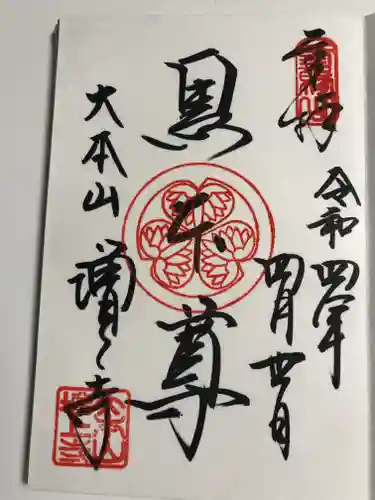 奉拝
令和四年
四月廿日
黒本尊
大本山
増上寺